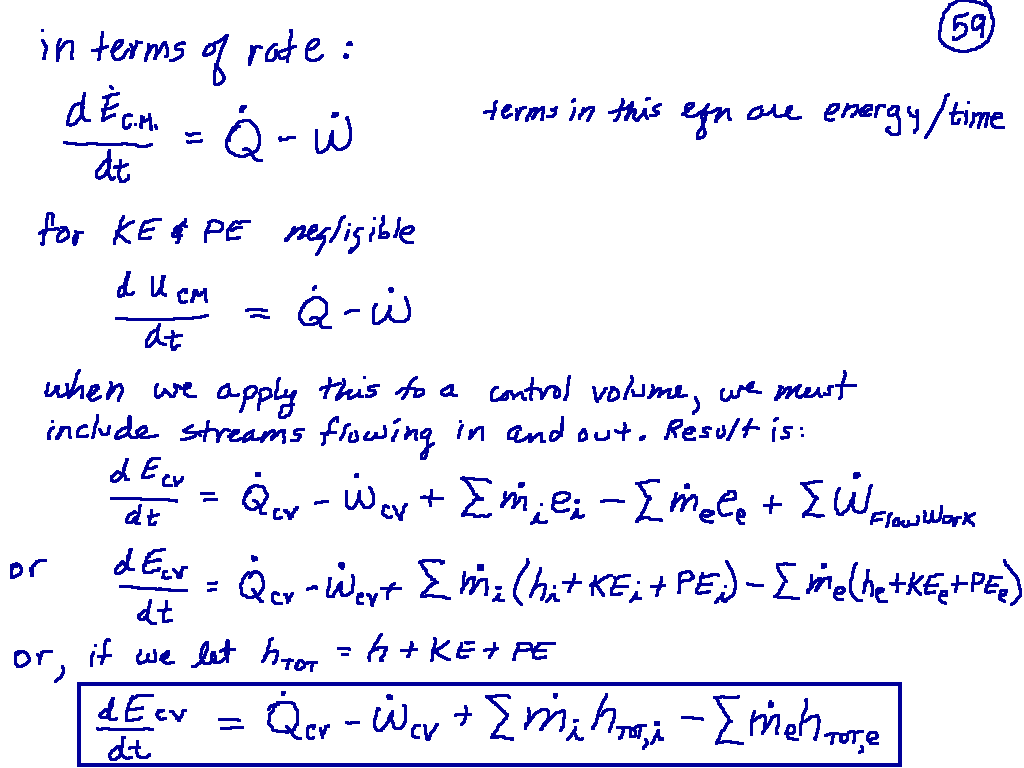 59
in terms of rate:
dĖ_C.M./dt = Q̇ - Ẇ terms in this eqn are energy/time
for KE & PE negligible
dU_CM/dt = Q̇ - Ẇ
when we apply this to a control volume, we must
include streams flowing in and out. Result is:
dE_cv/dt = Q̇_cv - Ẇ_cv + Σ ṁ_i e_i - Σ ṁ_e e_e + Σ Ẇ_Flow Work
or dE_cv/dt = Q̇_cv - Ẇ_cv + Σ ṁ_i (h_i + KE_i + PE_i) - Σ ṁ_e (h_e + KE_e + PE_e)
or, if we let h_TOT = h + KE + PE
dE_cv/dt = Q̇_cv - Ẇ_cv + Σ ṁ_i h_TOT,i - Σ ṁ_e h_TOT,e